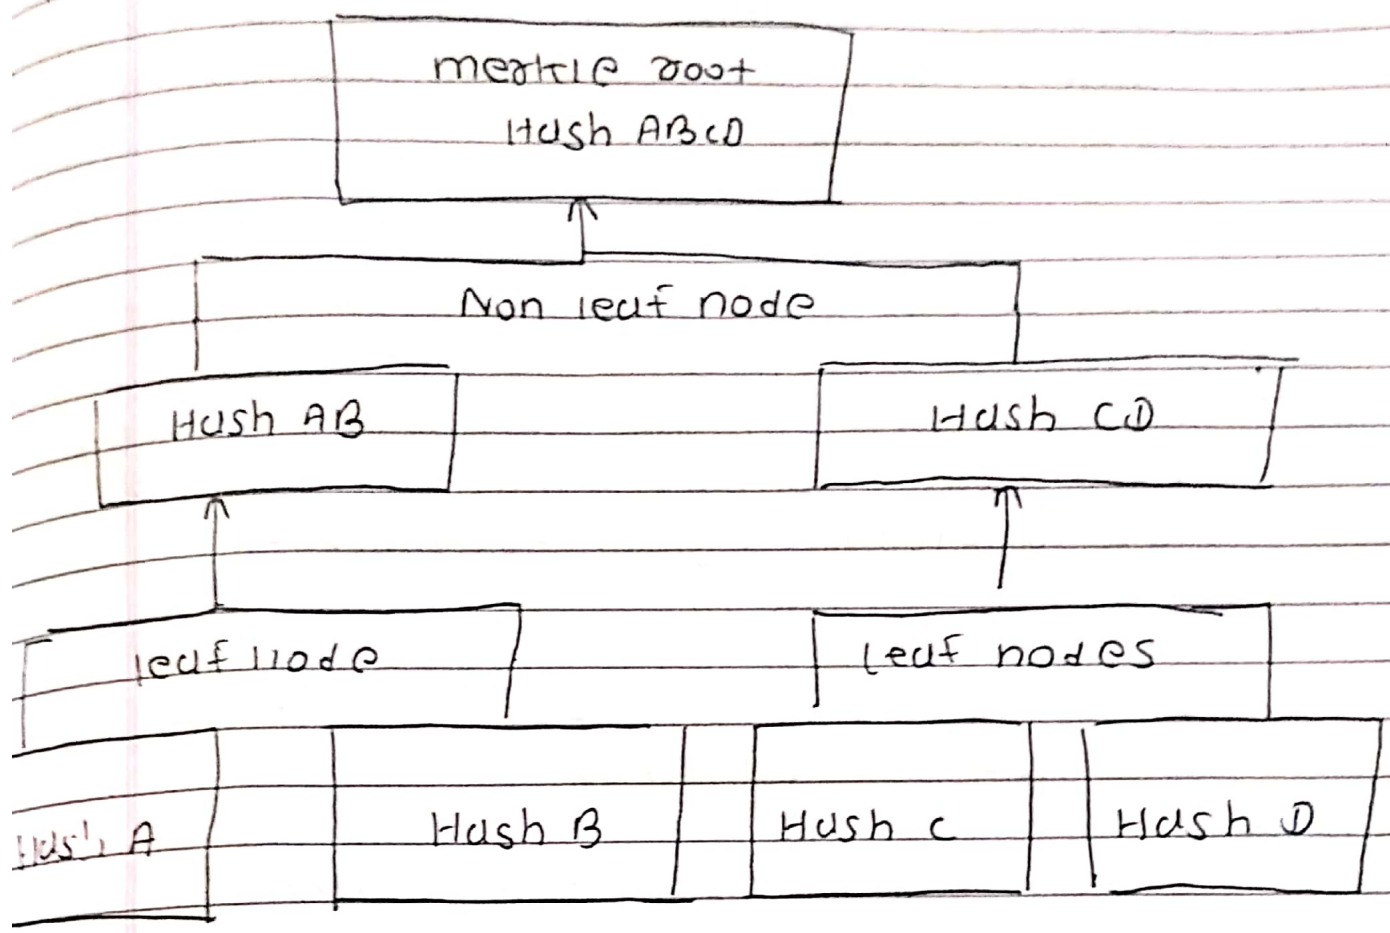 merkle root
Hash ABCD
Non leaf node
Hash AB
Hash CD
leaf node
Leaf nodes
Hash A
Hash B
Hash C
Hash D